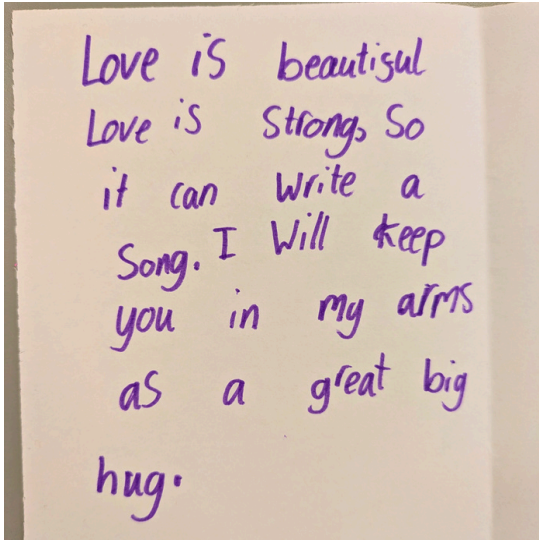 Love is beautiful
Love is Strong, So
it can write a
Song. I Will keep
you in my arms
as a great big
hug.